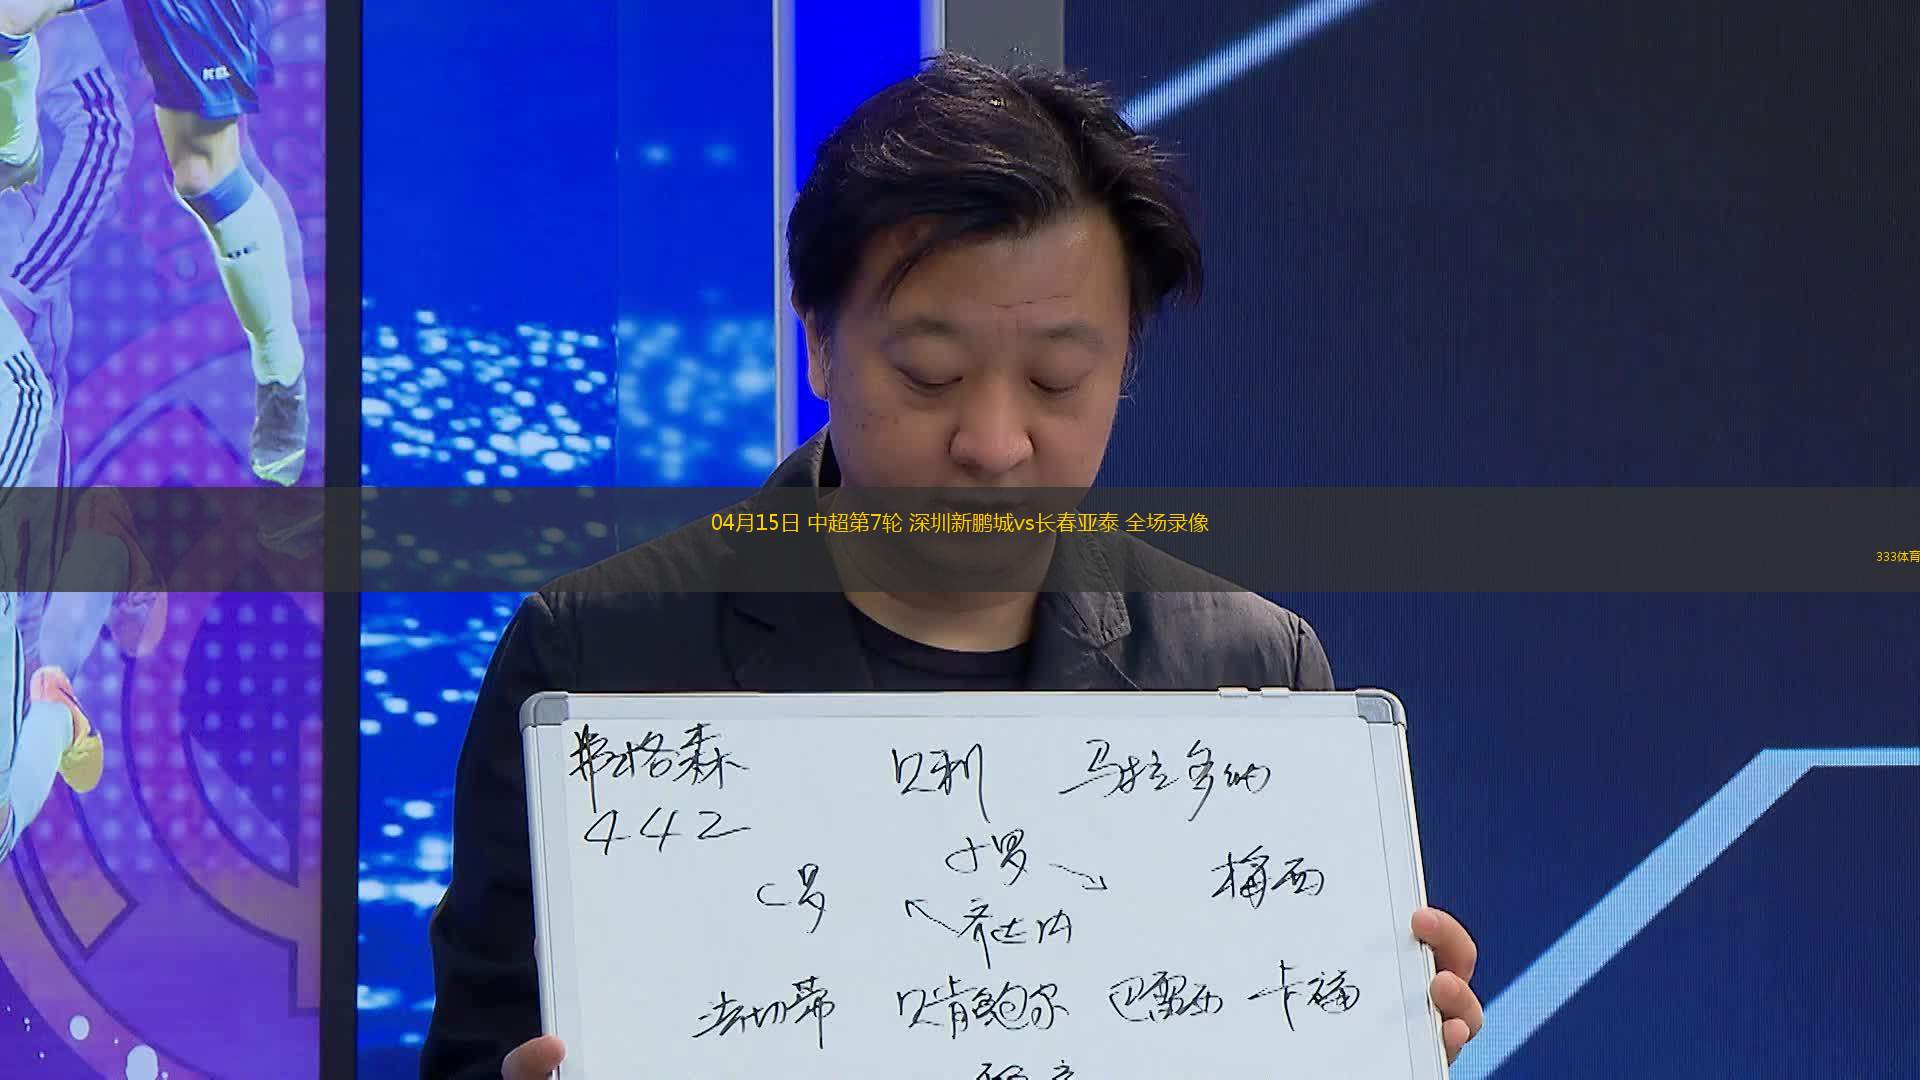 04月15日 中超第7轮 深圳新鹏城vs长春亚泰 全场录像
333体育
弗格森 贝利 马拉多纳
442
小罗
C罗 梅西
齐达内
法切蒂 贝肯鲍尔 巴雷西 卡福